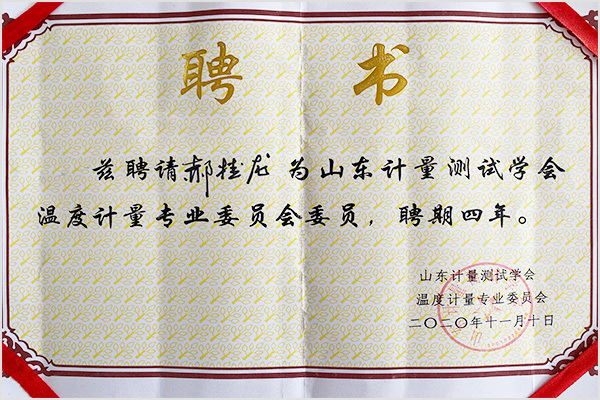 聘书
兹聘请郝桂龙为山东计量测试学会
温度计量专业委员会委员，聘期四年。
山东计量测试学会
温度计量专业委员会
二〇二〇年十一月十日